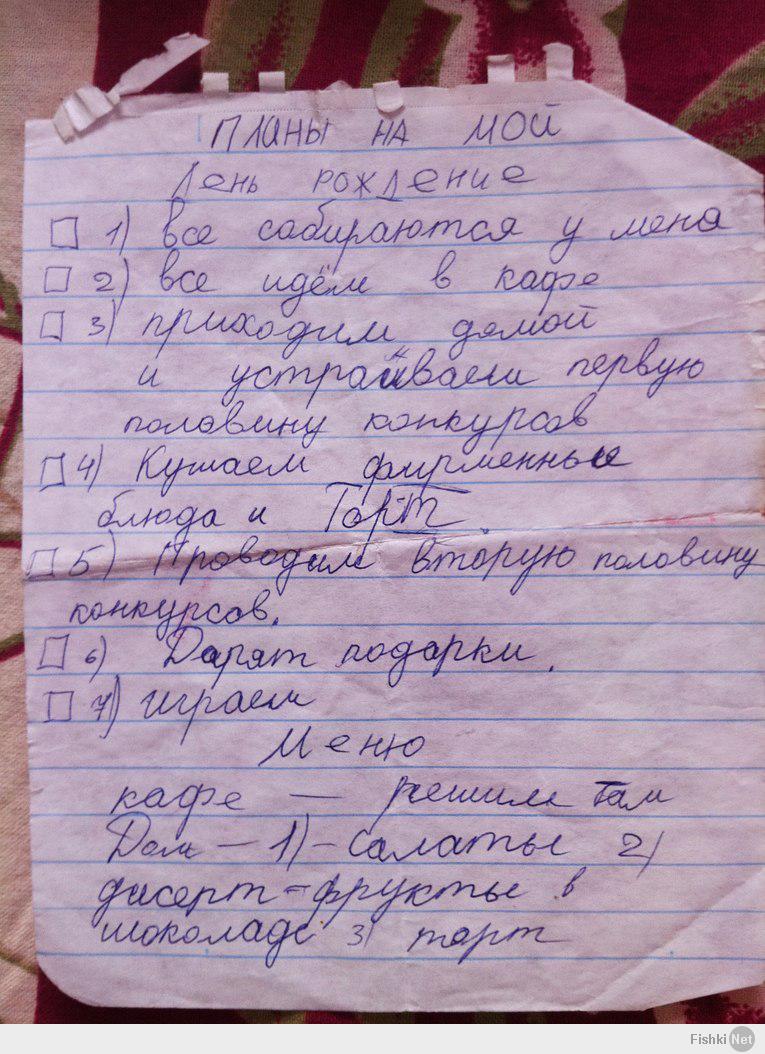 ПЛАНЫ НА МОЙ
День рождение
1) все собираются у меня
2) все идём в кафе
3) приходим домой
и устраиваем первую
половину конкурсов
4) Кушаем фирменные
блюда и Торт.
5) Проводим вторую половину
конкурсов.
6) Дарят подарки.
7) играем
Меню
кафе — решим там
Дом – 1) – салаты 2)
дисерт – фрукты в
шоколаде 3) торт
Fishki Net